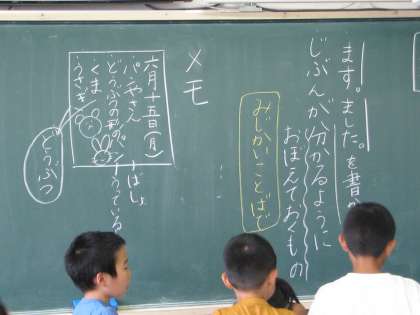 ます。ました。を書か
じぶんが分かるように
おぼえておくもの
みじかいことばで
メモ
六月十五日(月)
パンやさん
どうぶつの形のパン
くま
うさぎ
ばしょ
うっている
どうぶつ